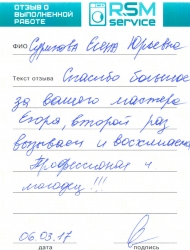 ОТЗЫВ О
ВЫПОЛНЕННОЙ
РАБОТЕ
RSM
service
ФИО Сурикова Елена Юрьевна
Текст отзыва Спасибо большое
за вашего мастера
Егора, второй раз
вызываем и восхищаемся
Профессионал и
молодец!!!
06.03.17
дата
подпись